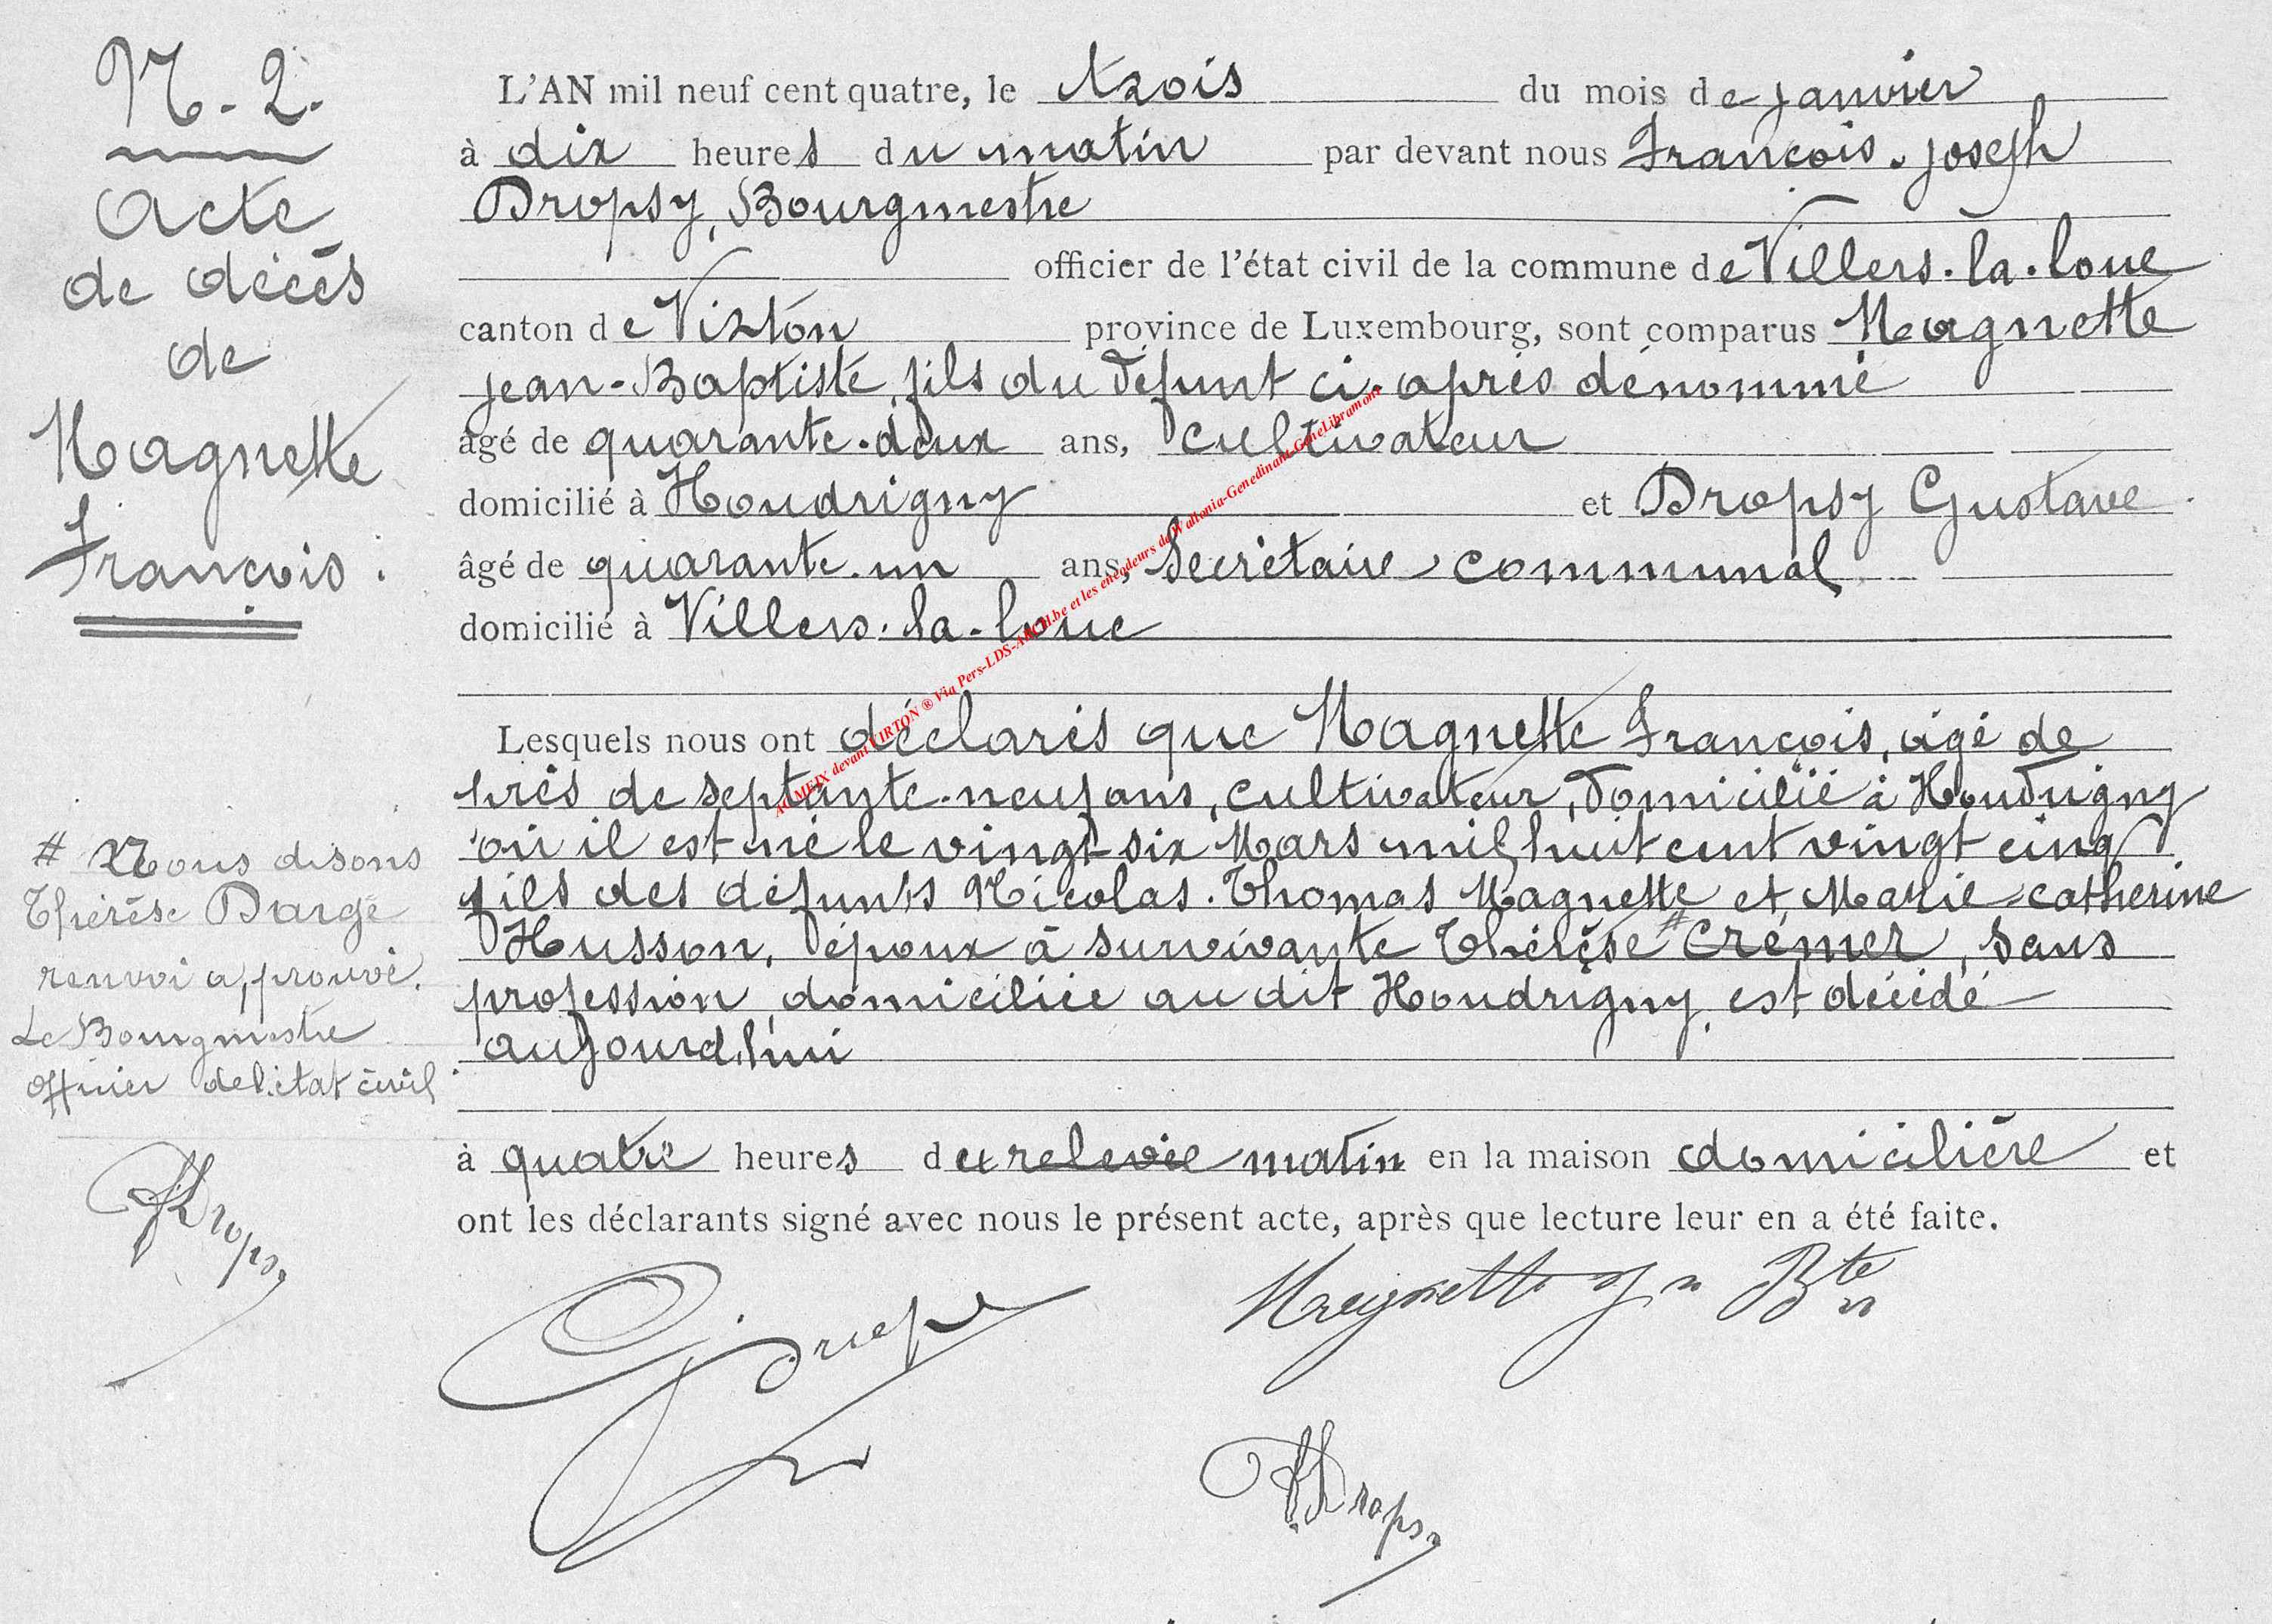 N. 2.
Acte
de décès
de
Magnette
François.
L'AN mil neuf cent quatre, le trois du mois de janvier
à dix heures du matin par devant nous François-joseph
Dropsy, Bourgmestre
officier de l'état civil de la commune de Villers-la-loue
canton de Virton province de Luxembourg, sont comparus Magnette
jean-Baptiste, fils du défunt ci-après dénommé
âgé de quarante-deux ans, cultivateur
domicilié à Houdrigny et Dropsy Gustave
âgé de quarante-un ans, Secrétaire communal
domicilié à Villers-la-loue
Lesquels nous ont déclarés que Magnette François, âgé de
près de septante-neuf ans, cultivateur, domicilié à Houdrigny
où il est né le vingt-six Mars mil huit cent vingt cinq
fils des défunts Nicolas-Thomas Magnette et Marie-catherine
Husson, époux à survivante Thérèse # Crémer, sans
profession, domiciliée au dit Houdrigny, est décédé
aujourd'hui
à quatre heures du relevée matin en la maison domicilière et
ont les déclarants signé avec nous le présent acte, après que lecture leur en a été faite.
# Nous disons
Thérèse Dargé
renvoi approuvé.
Le Bourgmestre
officier de l'état civil
FDropsy
GDropsy
Magnette Jn Bte
FDropsy
AC MEIX devant VIRTON ® Via Pers-LDS-ARCH.be et les encodeurs de Wallonia-Genedinant-GeneLibramont